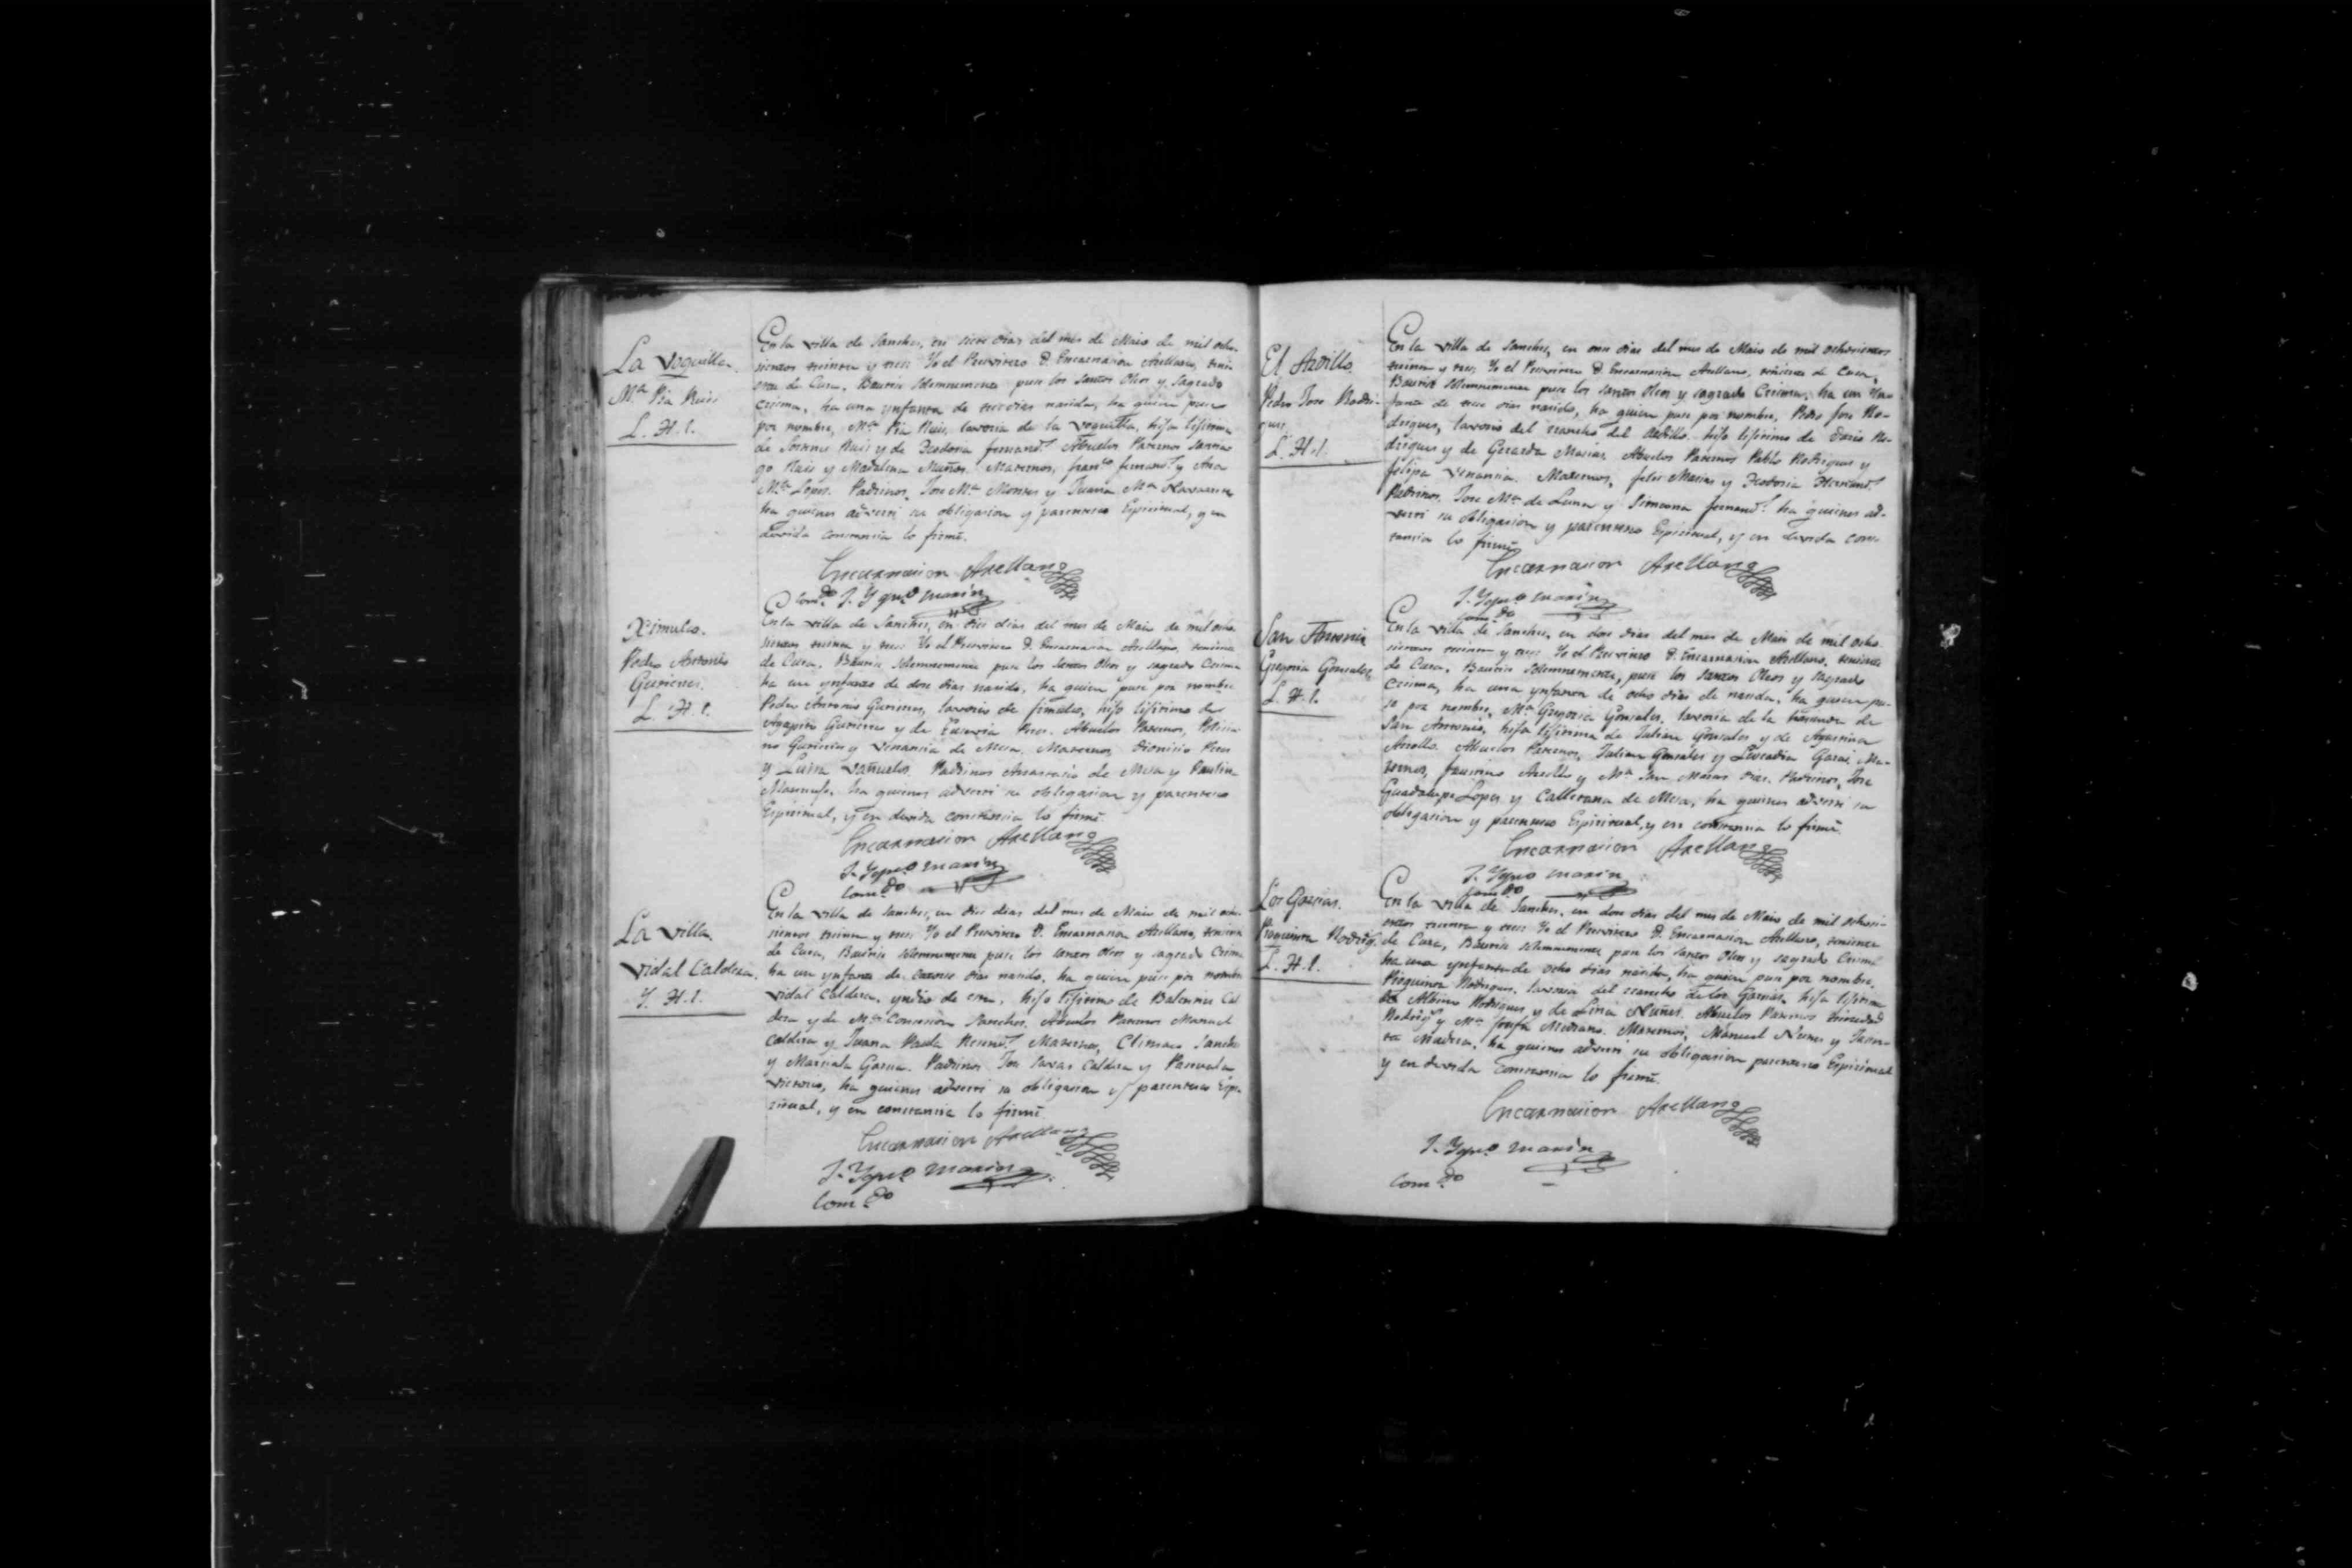 La Voquilla.
Mª Pia Ruis
L. H. l.
En la villa de Sanches, en siete dias del mes de Maio de mil ocho-
sientos treinta y tres: Yo el Presvitero D. Encarnasion Arellano, tenie
nte de Cura, Bautise solemnemente puse los santos Oleos y sagrado
Crisma, ha una ynfanta de tres dias nasida, ha quien puse
por nombre, Mª Pia Ruis, de la Voquilla, hija lijitima
de Ruis y de Teodora fernandˢ Abuelos Paternos Santia
go Ruis y Madalena Muños. Maternos, franᶜᵒ fernandˢ y Ana
Mª Lopes. Padrinos, Jose Mª Montes y Juana Mª
ha quienes adverti su obligasion y parentesco Espiritual, y en
devida constansia lo firmé.
Encarnasion Arellano
J. Ygnº Marin
Ximulco.
Pedro Antonio
Gutierres.
L. H. l.
En la villa de Sanches, en dies dias del mes de Maio de mil ocho
sientos treinta y tres: Yo el Presvitero D. Encarnasion Arellano, teniente
de Cura, Bautise solemnemente puse los santos Oleos y sagrado Crisma
ha un ynfante de dose dias nasido, ha quien puse por nombre
Pedro Antonio Gutierres, de Jimulco, hijo lijitimo de
Agapito Gutierres y de Peres. Abuelos Paternos,
Gutierres y Venansia de Mesa. Maternos, Dionisio Peres
y Luisa Vañuelos. Padrinos Anastasio de Mesa y Paulina
ha quienes adverti su obligasion y parentesco
Espiritual, y en devida constansia lo firmé.
Encarnasion Arellano
J. Ygnº Marin
La villa.
Vidal Caldera.
Y. H. l.
En la villa de Sanches, en dies dias del mes de Maio de mil ocho
sientos treinta y tres: Yo el Presvitero D. Encarnasion Arellano, teniente
de Cura, Bautise solemnemente puse los santos Oleos y sagrado Crisma
ha un ynfante de catorse dias nasido, ha quien puse por nombre
Vidal Caldera, yndio de esta, hijo lijitimo de Cal
dera y de Mª Sanches. Abuelos Paternos Manuel
Caldera y Juana Paula Maternos, Climaco Sanches
y Marsiala Garsia. Padrinos Jose Caldera y Pascuala
ha quienes adverti su obligasion y parentesco Espi-
ritual, y en constansia lo firmé.
Encarnasion Arellano
J. Ygnº Marin
El Ardillo.
Pedro Jose Rodri-
gues
L. H. l.
En la villa de Sanches, en onse dias del mes de Maio de mil ochosientos
treinta y tres: Yo el Presvitero D. Encarnasion Arellano, teniente de Cura,
Bautise solemnemente puse los santos Oleos y sagrado Crisma, ha un Yn-
fante de dias nasido, ha quien puse por nombre, Pedro Jose Ro-
drigues, del rancho del Ardillo. hijo lijitimo de Ro-
drigues y de Gerarda Masias. Abuelos Paternos Pablo Rodrigues y
felipa Venansia. Maternos, felis Masias y Teodoria
Padrinos, Jose Mª de Luna y Simona fernandˢ ha quienes ad-
verti su obligasion y parentesco Espiritual, y en devida cons-
tansia lo firmé
Encarnasion Arellano
J. Ygnº Marin
San Antonio
Gregoria Gonsales
L. H. l.
En la villa de Sanches, en dose dias del mes de Maio de mil ocho
sientos treinta y tres: Yo el Presvitero D. Encarnasion Arellano, teniente
de Cura, Bautise solemnemente, puse los santos Oleos y sagrado
Crisma, ha una ynfanta de ocho dias de nasida, ha quien pu-
se por nombre, Mª Gregoria Gonsales, de la hasienda de
San Antonio, hija lijitima de Julian Gonsales y de Agustina
Abuelos Paternos, Julian Gonsales y Ma-
ternos, faustino y Mª Padrinos, Jose
Guadalupe Lopes y de Mesa, ha quienes adverti su
obligasion y parentesco Espiritual, y en constansia lo firmé.
Encarnasion Arellano
J. Ygnº Marin
Los Garsias.
Rodrigˢ
L. H. l.
En la villa de Sanches, en dose dias del mes de Maio de mil ochosi-
entos treinta y tres: Yo el Presvitero D. Encarnasion Arellano, teniente
de Cura, Bautise solemnemente puse los santos Oleos y sagrado Crisma
ha una ynfanta de ocho dias nasida, ha quien puse por nombre,
Rodrigues, del rancho de los Garsias, hija lijitima
de Albino Rodrigues y de Lina Nuñes. Abuelos Paternos Trinidad
Rodrigˢ y Mª Josefa Medrano. Maternos, Manuel Nunes y Jasin-
ta Madera, ha quienes adverti su obligasion parentesco Espiritual
y en devida constansia lo firmé.
Encarnasion Arellano
J. Ygnº Marin